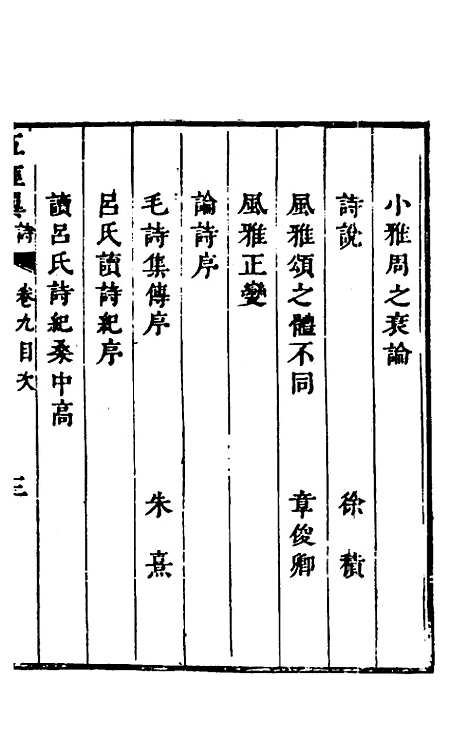 小雅周之衰論
詩說 徐積
風雅頌之體不同 章俊卿
風雅正變
論詩序
毛詩集傳序 朱熹
呂氏讀詩紀序
讀呂氏詩紀桑中高
五經 詩 卷九目次 三